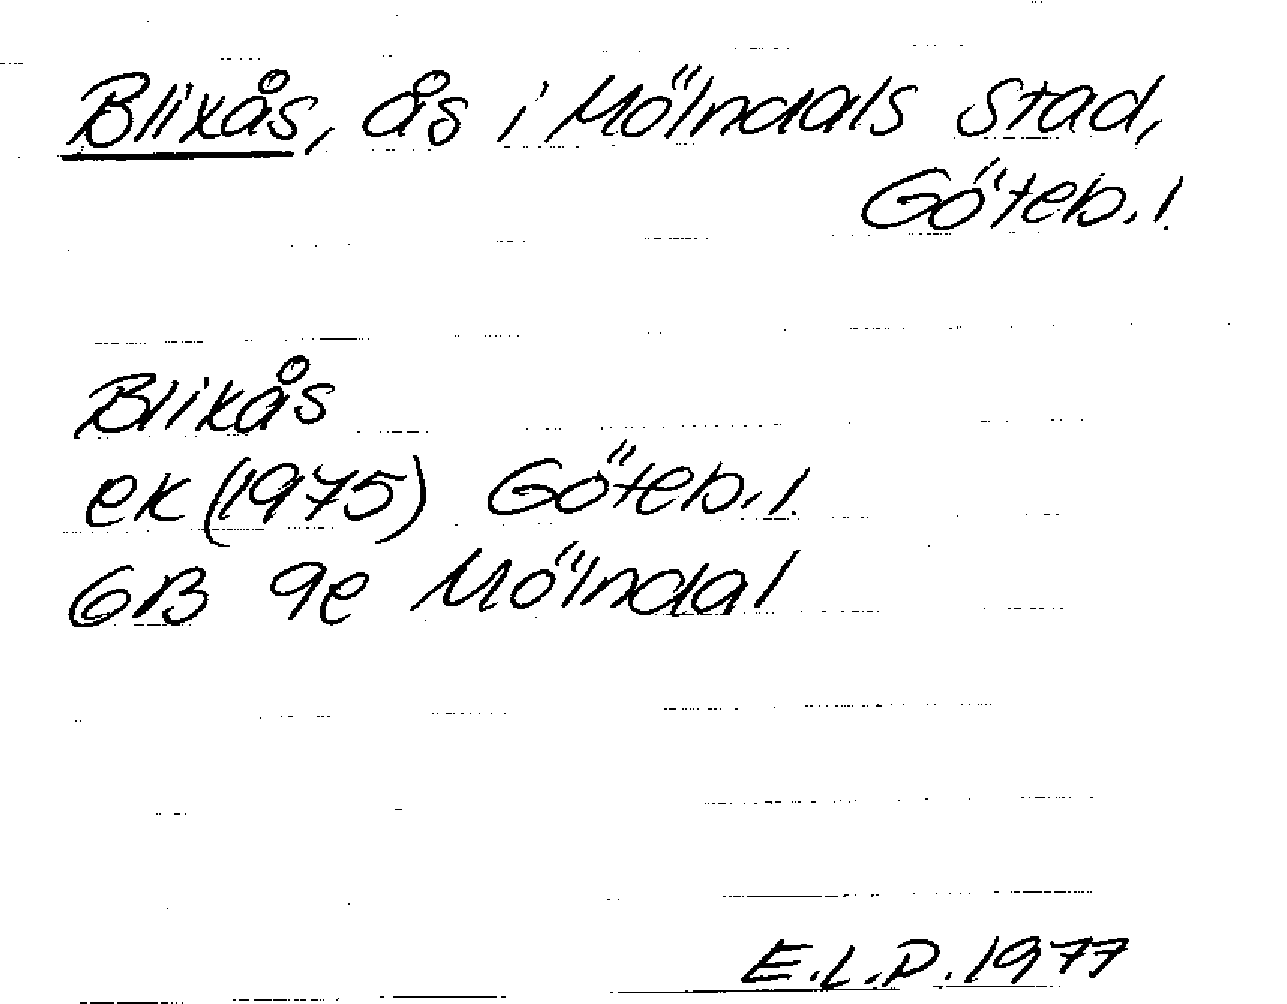 Blixås, ås i Mölndals stad,
Göteb. l.
Blikås
ek (1975) Göteb. l.
6B 9e Mölndal
E.L.D. 1977